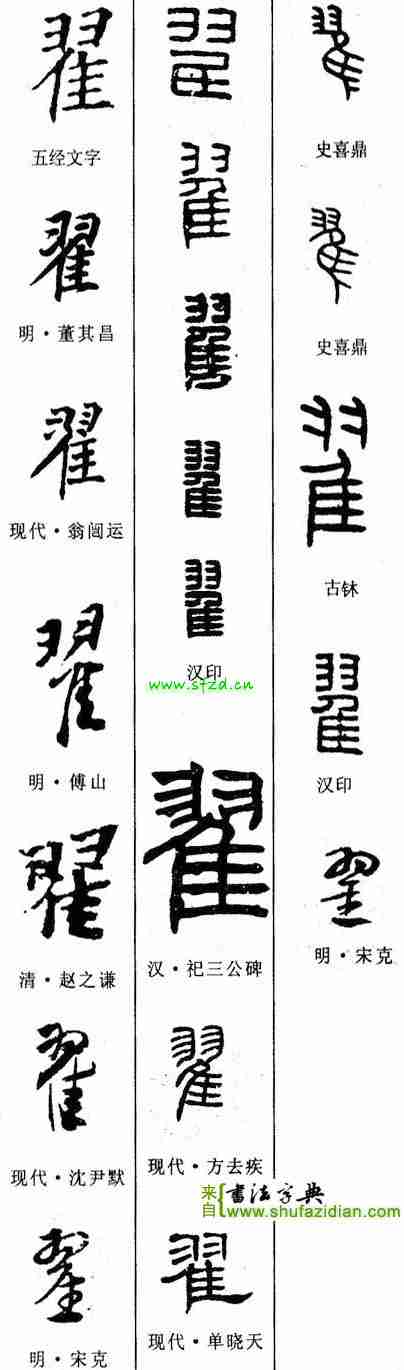 翟
史喜鼎
翟
史喜鼎
翟
古𬬸
翟
汉印
翟
明·宋克
翟
翟
翟
翟
翟
汉印
www.sfzd.cn
翟
汉·祀三公碑
翟
现代·方去疾
翟
现代·单晓天
翟
五经文字
翟
明·董其昌
翟
现代·翁闿运
翟
明·傅山
翟
清·赵之谦
翟
现代·沈尹默
翟
明·宋克
来自 書法字典
www.shufazidian.com